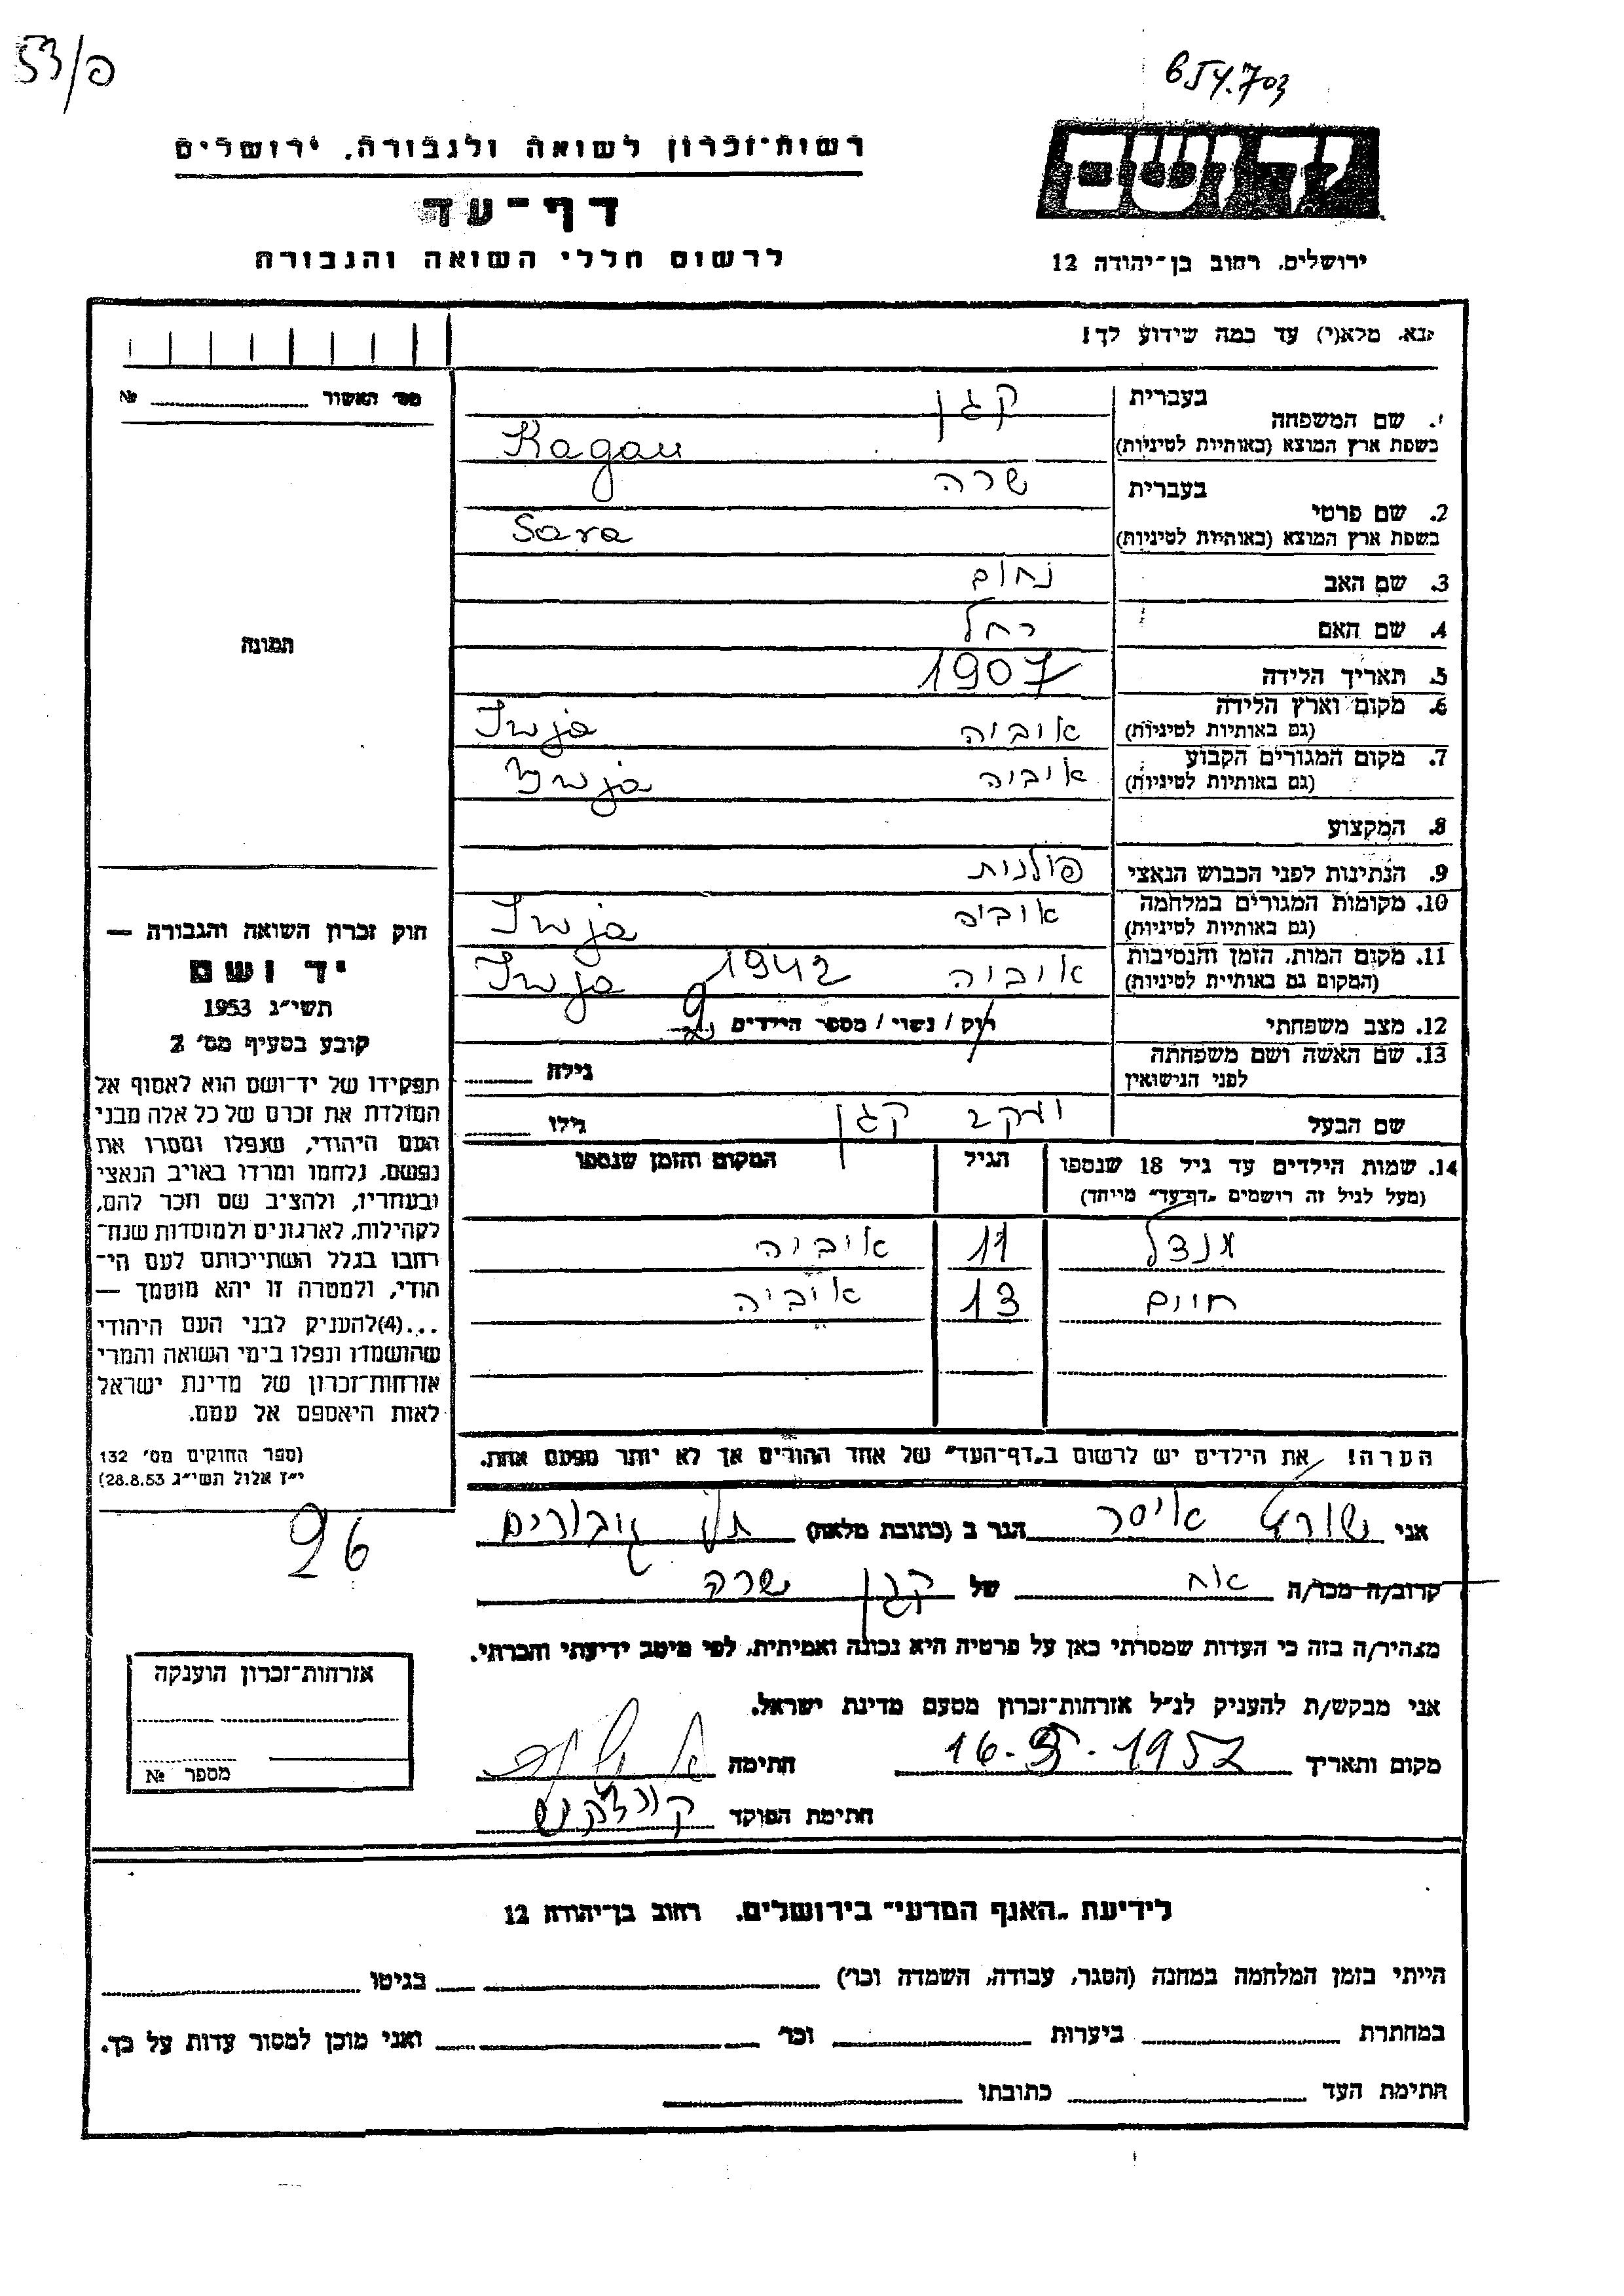 53/פ
654.703
רשות-זכרון לשואה ולגבורה, ירושלים
דף-עד
לרשום חללי השואה והגבורה
יד ושם
ירושלים, רחוב בן-יהודה 12
נא. מלא(י) עד כמה שידוע לך!
מס' האשור №
1. שם המשפחה
בעברית קגן
בשפת ארץ המוצא (באותיות לטיניות) Kagan
2. שם פרטי
בעברית שרה
בשפת ארץ המוצא (באותיות לטיניות) Sara
3. שם האב נחום
4. שם האם רחל
5. תאריך הלידה 1907
6. מקום וארץ הלידה
(גם באותיות לטיניות) אוביה Iwja
7. מקום המגורים הקבוע
(גם באותיות לטיניות) איביה Iwja
8. המקצוע
9. הנתינות לפני הכבוש הנאצי פולנית
10. מקומות המגורים במלחמה
(גם באותיות לטיניות) אוביה Iwja
11. מקום המות, הזמן והנסיבות
(המקום גם באותיית לטיניות) איביה 1942 Iwja
12. מצב משפחתי רוק / נשוי / מספר הילדים 2
13. שם האשה ושם משפחתה
לפני הנישואין גילה
שם הבעל יעקב קגן גילו
14. שמות הילדים עד גיל 18 שנספו הגיל המקום והזמן שנספו
(מעל לגיל זה רושמים "דף-עד" מיוחד)
מנדל 11 איביה
חיים 13 איביה
הערה! את הילדים יש לרשום ב"דף-העד" של אחד ההורים אך לא יותר מפעם אחת.
תמונה
חוק זכרון השואה והגבורה —
יד ושם
תשי"ג 1953
קובע בסעיף מס' 2
תפקידו של יד-ושם הוא לאסוף אל
המולדת את זכרם של כל אלה מבני
העם היהודי, שנפלו ומסרו את
נפשם, נלחמו ומרדו באויב הנאצי
ובעוזריו, ולהציב שם וזכר להם,
לקהילות, לארגונים ולמוסדות שנח-
רבו בגלל השתייכותם לעם הי-
הודי, ולמטרה זו יהא מוסמך —
...(4)להעניק לבני העם היהודי
שהושמדו ונפלו בימי השואה והמרי
אזרחות-זכרון של מדינת ישראל
לאות היאספם אל עמם.
(ספר החוקים מס' 132
י"ז אלול תשי"ג 28.8.53)
אני שורט איסר הגר ב (כתובת מלאה) תל גבורים
קרוב/ה מכר/ה אח של קגן שרה
מצהיר/ה בזה כי העדות שמסרתי כאן על פרטיה היא נכונה ואמיתית, לפי מיטב ידיעתי והכרתי.
אני מבקש/ת להעניק לנ"ל אזרחות-זכרון מטעם מדינת ישראל.
מקום ותאריך 16. 5. 1957 חתימה
חתימת הפוקד
26
אזרחות-זכרון הוענקה
מספר №
לידיעת "האגף המדעי" בירושלים. רחוב בן-יהודה 12
הייתי בזמן המלחמה במחנה (הסגר, עבודה, השמדה וכו') בגיטו
במחתרת ביערות וכו' ואני מוכן למסור עדות על כך.
חתימת העד כתובתו